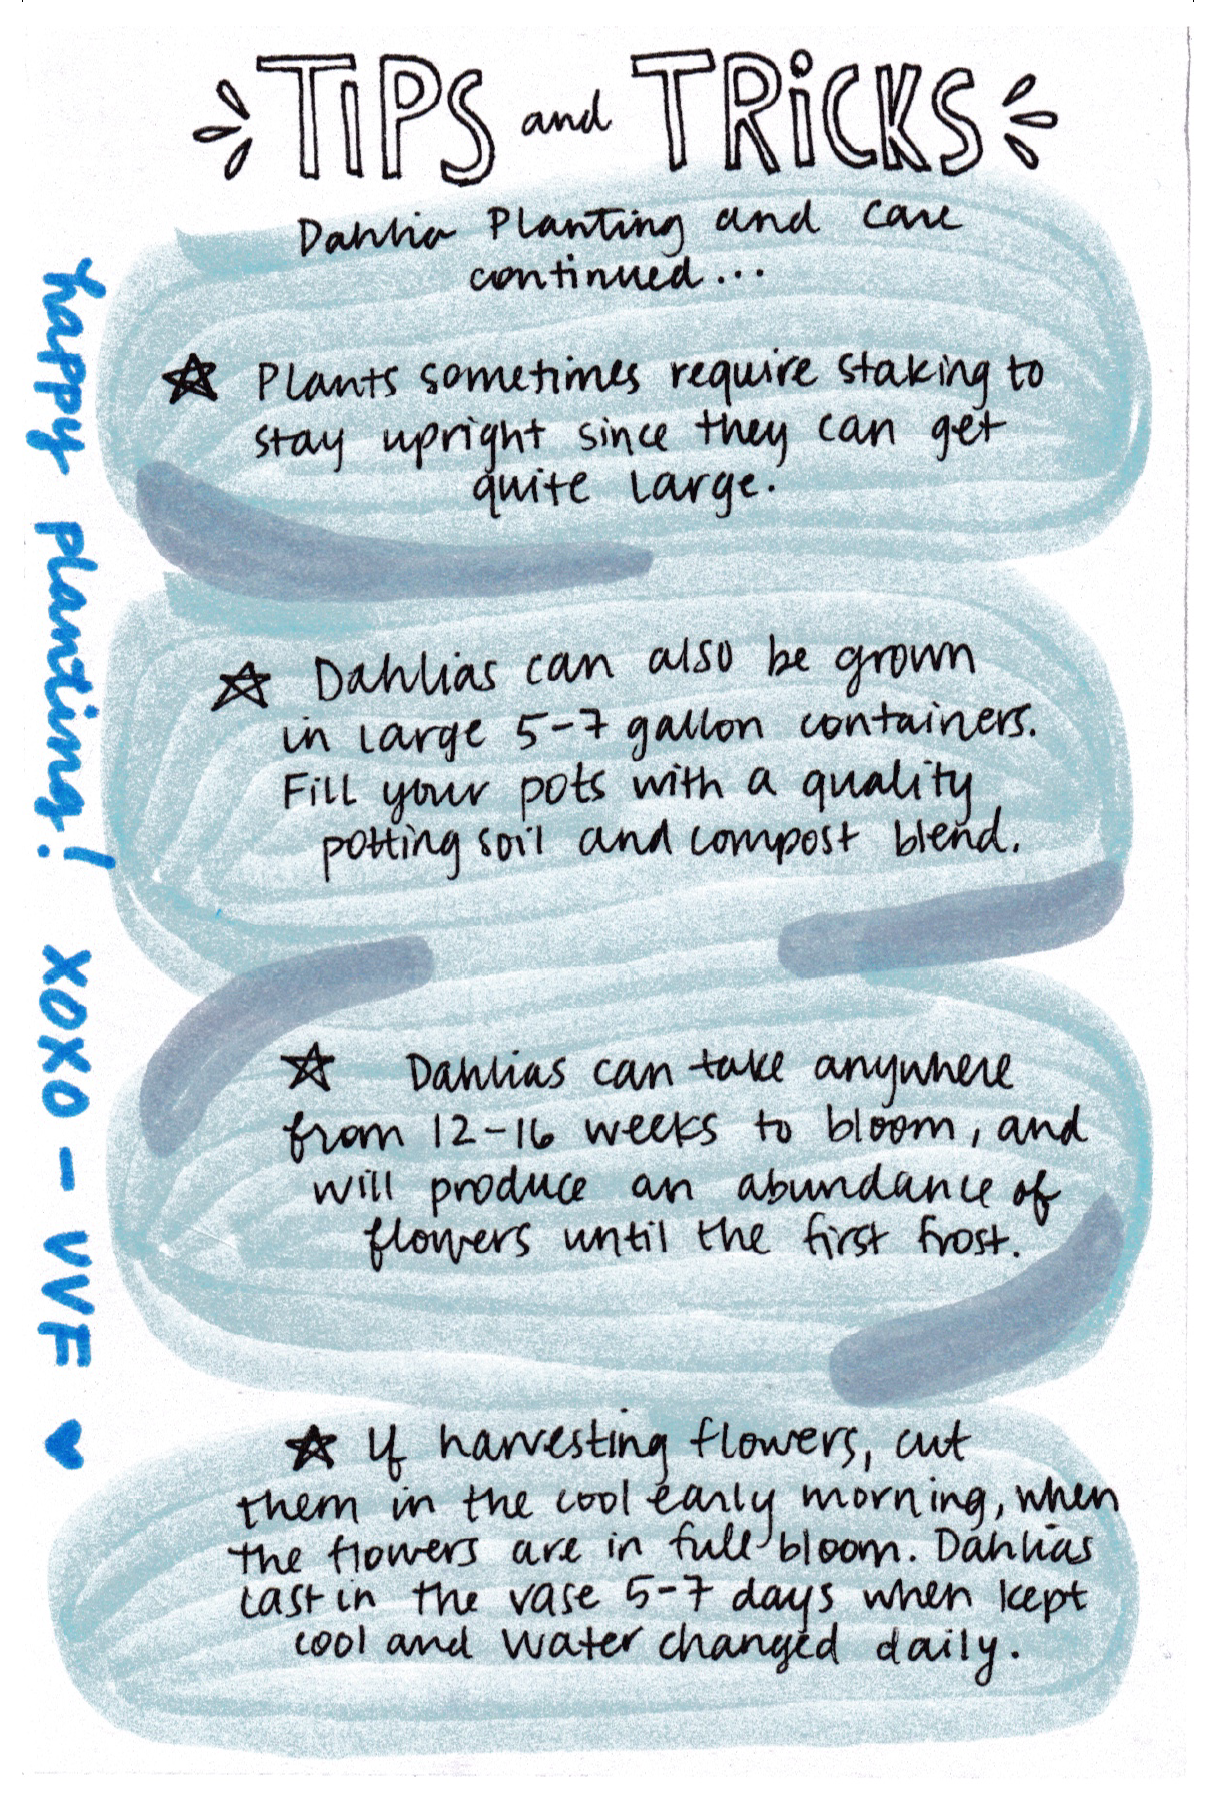 TIPS and TRICKS
Dahlia Planting and care
continued...
☆ Plants sometimes require staking to
stay upright since they can get
quite large.
☆ Dahlias can also be grown
in large 5-7 gallon containers.
Fill your pots with a quality
potting soil and compost blend.
☆ Dahlias can take anywhere
from 12-16 weeks to bloom, and
will produce an abundance of
flowers until the first frost.
☆ If harvesting flowers, cut
them in the cool early morning, when
the flowers are in full bloom. Dahlias
last in the vase 5-7 days when kept
cool and water changed daily.
happy planting! XOXO - VVF ♥